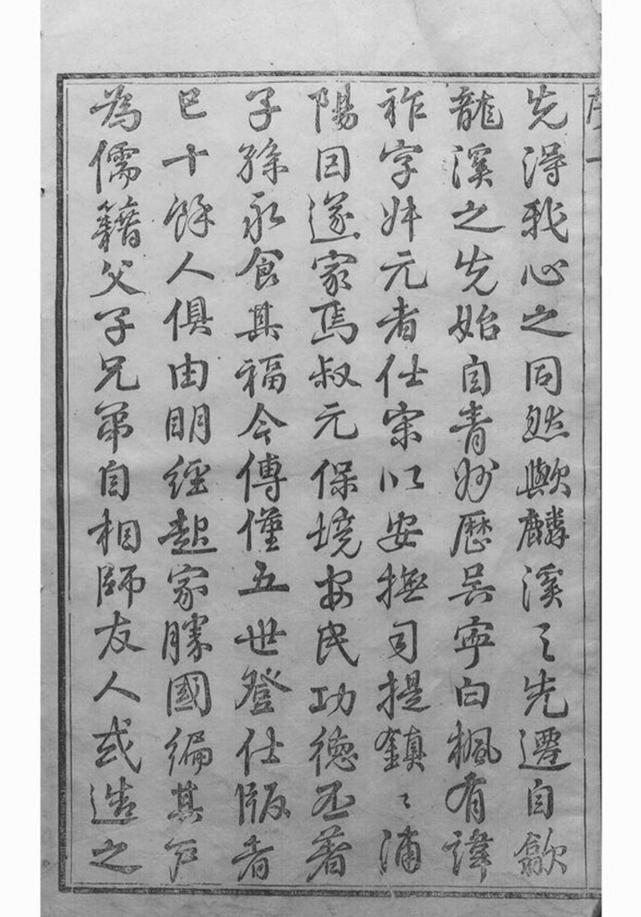 先得我心之同然歟麟溪〻先遷自歙
龍溪之先始自青歷吳寧白楓有諱
祚字叔元者仕宋以安撫司提鎮〻浦
陽因遂家焉叔元保境安民功德丕著
子孫永食其福今傳僅五世登仕版者
已十餘人俱由明經起家勝國編其戶
為儒籍父子兄弟自相師友人或造之